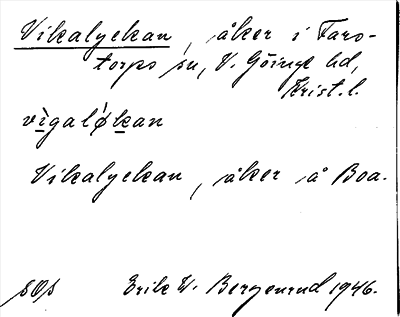 Vikalyckan, åker i Fars-
torps sn, V. Göinge hd,
Krist. l.
vìgaløkan
Vikalyckan, åker å Boa.
Erik W. Bergenrud 1946.